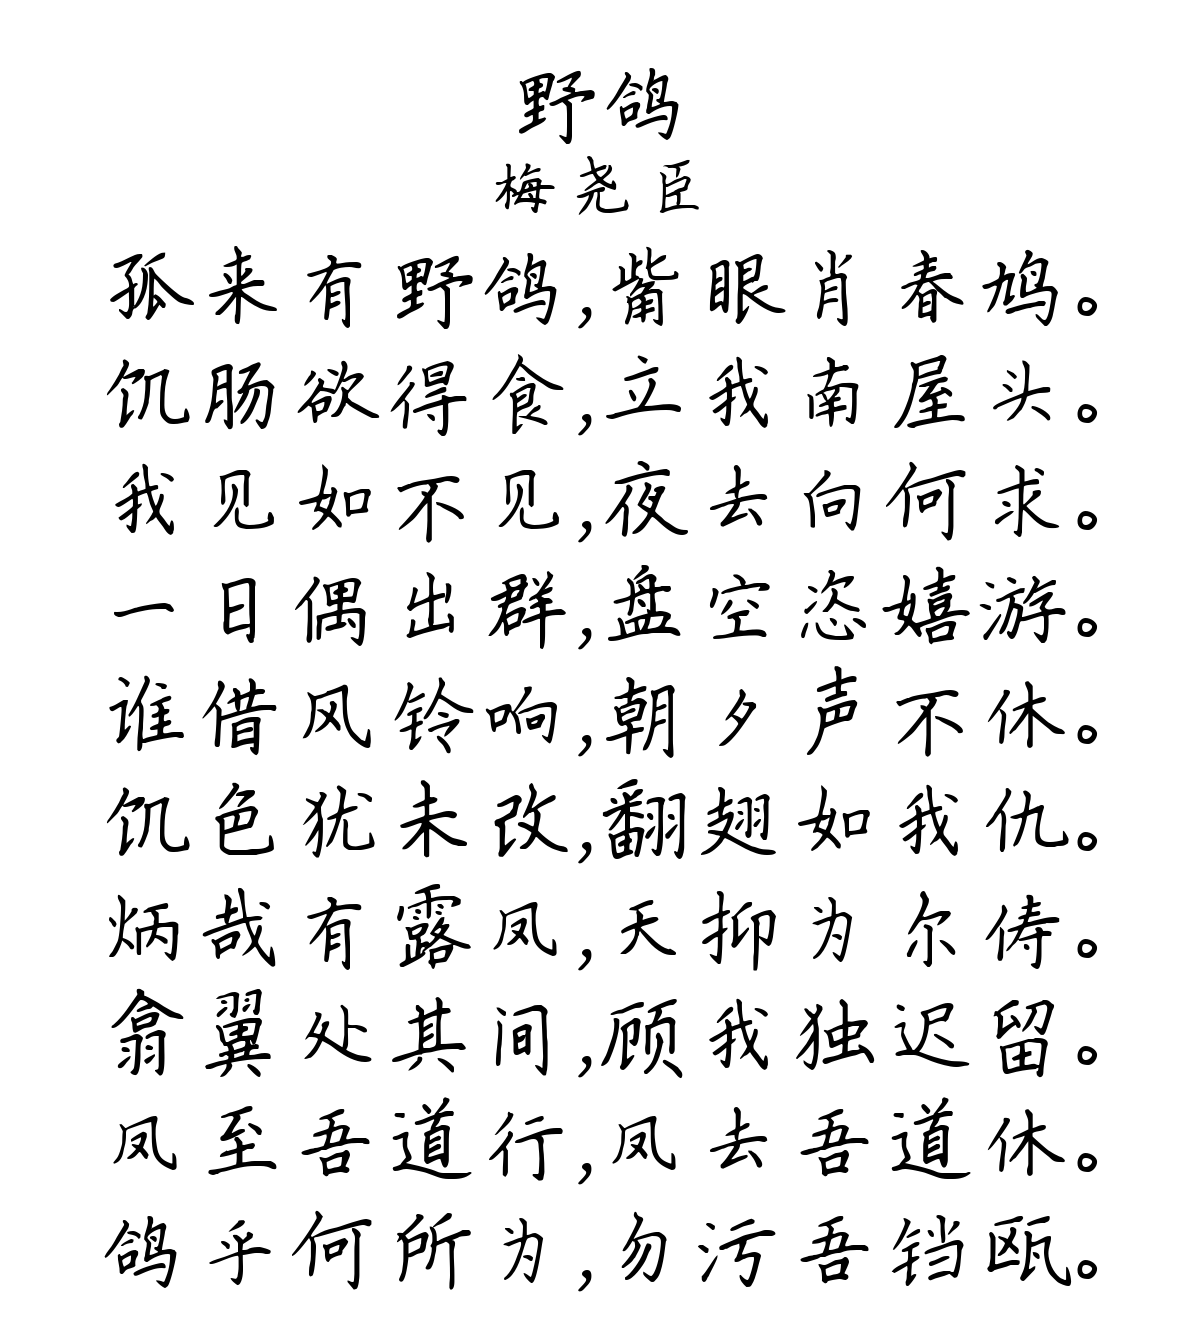 野鸽
梅尧臣
孤来有野鸽,觜眼肖春鸠。
饥肠欲得食,立我南屋头。
我见如不见,夜去向何求。
一日偶出群,盘空恣嬉游。
谁借风铃响,朝夕声不休。
饥色犹未改,翻翅如我仇。
炳哉有露凤,天抑为尔俦。
翕翼处其间,顾我独迟留。
凤至吾道行,凤去吾道休。
鸽乎何所为,勿污吾铛瓯。